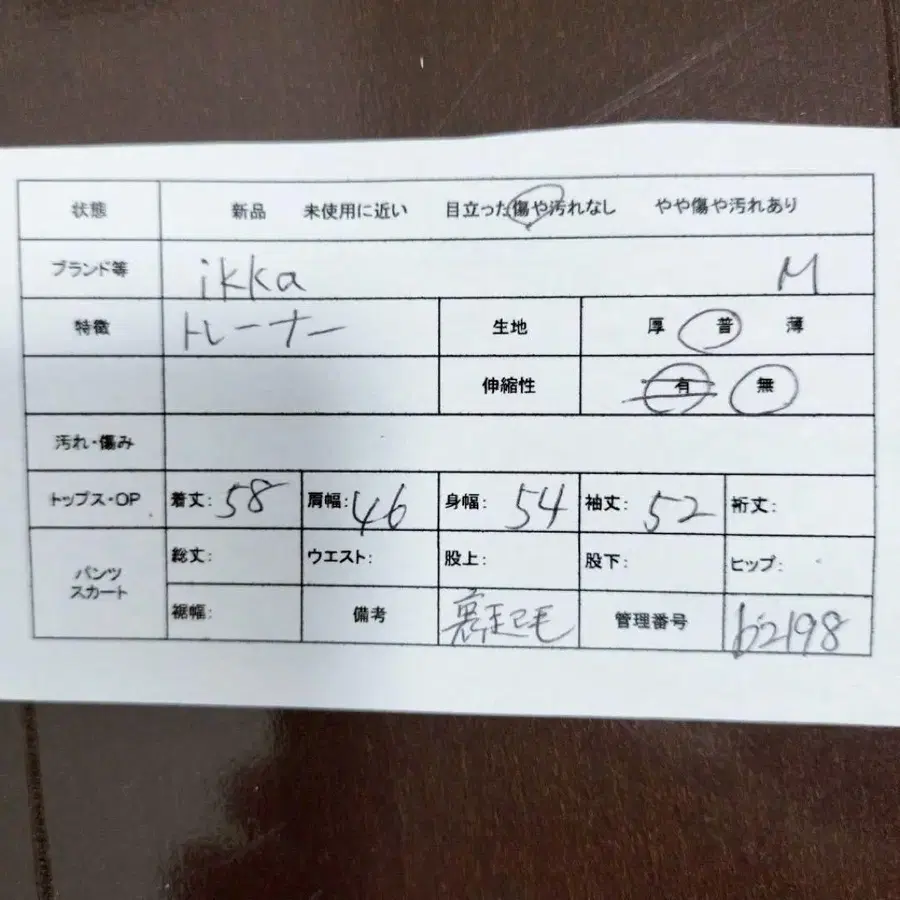 状態 新品 未使用に近い 目立った傷や汚れなし やや傷や汚れあり
ブランド等 ikka M
特徴 トレーナー 生地 厚 普 薄
伸縮性 有 無
汚れ・傷み
トップス・OP 着丈: 58 肩幅: 46 身幅: 54 袖丈: 52 裄丈:
パンツ スカート 総丈: ウエスト: 股上: 股下: ヒップ:
裾幅: 備考 裏起毛 管理番号 b2198